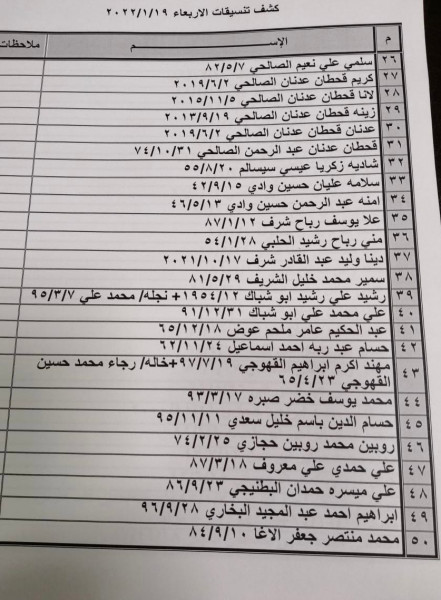 كشف تنسيقات الاربعاء ٢٠٢٢/١/١٩
م الإســـــم ملاحظات
٢٦ سلمي علي نعيم الصالحي ٨٢/٥/٧
٢٧ كريم قحطان عدنان الصالحي ٢٠١٩/٦/٢
٢٨ لانا قحطان عدنان الصالحي ٢٠١٥/١١/٥
٢٩ زينه قحطان عدنان الصالحي ٢٠١٣/٩/١٩
٣٠ عدنان قحطان عدنان الصالحي ٢٠١٩/٦/٢
٣١ قحطان عدنان عبد الرحمن الصالحي ٧٤/١٠/٣١
٣٢ شاديه زكريا عيسي سيسالم ٥٥/٨/٢٠
٣٣ سلامه عليان حسين وادي ٤٢/٩/١٥
٣٤ امنه عبد الرحمن حسين وادي ٤٦/٥/١٣
٣٥ علا يوسف رباح شرف ٨٧/١/١٢
٣٦ مني رباح رشيد الحلبي ٥٤/١/٢٨
٣٧ دينا وليد عبد القادر شرف ٢٠٢١/١٠/١٧
٣٨ سمير محمد خليل الشريف ٨١/٥/٢٩
٣٩ رشيد علي رشيد ابو شباك ١٩٥٤/١٢+ نجله/ محمد علي ٩٥/٣/٧
٤٠ علي محمد علي ابو شباك ٩١/١٢/٣١
٤١ عبد الحكيم عامر ملحم عوض ٦٥/١٢/١٨
٤٢ حسام عبد ربه احمد اسماعيل ٦٢/١١/٢٤
٤٣ مهند اكرم ابراهيم القهوجي ٩٧/٧/١٩+خاله/ رجاء محمد حسين
القهوجي ٦٥/٤/٢٣
٤٤ محمد يوسف خضر صبره ٩٣/٣/١٧
٤٥ حسام الدين باسم خليل سعدي ٩٥/١١/١١
٤٦ روبين محمد روبين حجازي ٧٤/٢/٢٥
٤٧ علي حمدي علي معروف ٨٧/٣/١٨
٤٨ علي ميسره حمدان البطنيجي ٨٦/٩/٢٣
٤٩ ابراهيم احمد عبد المجيد البخاري ٩٦/٩/٢٨
٥٠ محمد منتصر جعفر الاغا ٨٤/٩/١٠